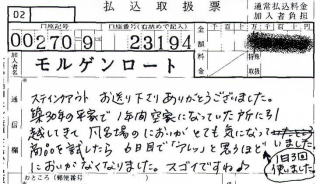 02
払込取扱票
通常払込料金
加入者負担
口座記号
口座番号(右詰めで記入)
00270-9
23194
金額
千 百 十 万 千 百 十 円
加入者名
モルゲンロート
料金
特殊取扱
通信欄
ステインアウト お送り下さりありがとうございました。
築30年の平家で1年間空家になっていた所に引
越してきて 風呂場のにおいが とても気になって
いました。
商品を試したら 6日目で「アレッ」と思うほど
1日3回
使いました。
においがなくなりました。スゴイですね♪
おところ(郵便番号